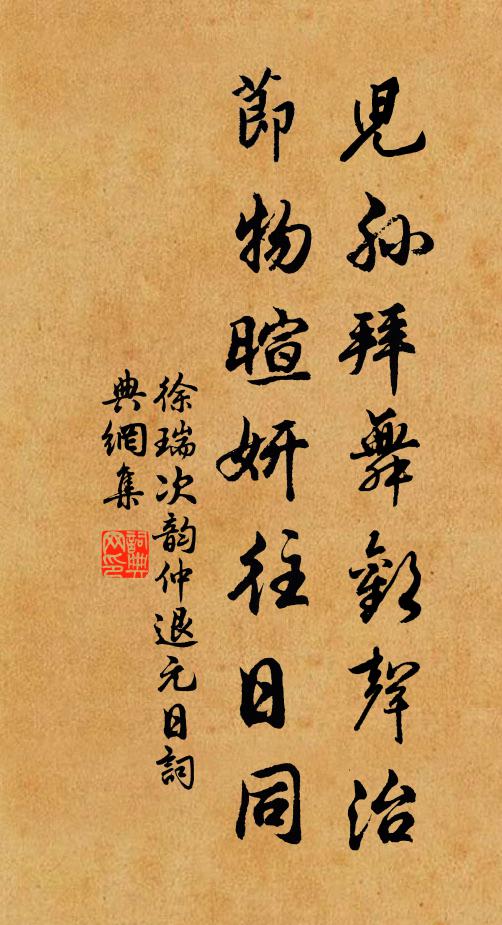 兒孫拜舞歡聲治
節物暄妍往日同
徐瑞次韵仲退元日詞
典網集
詞典網印